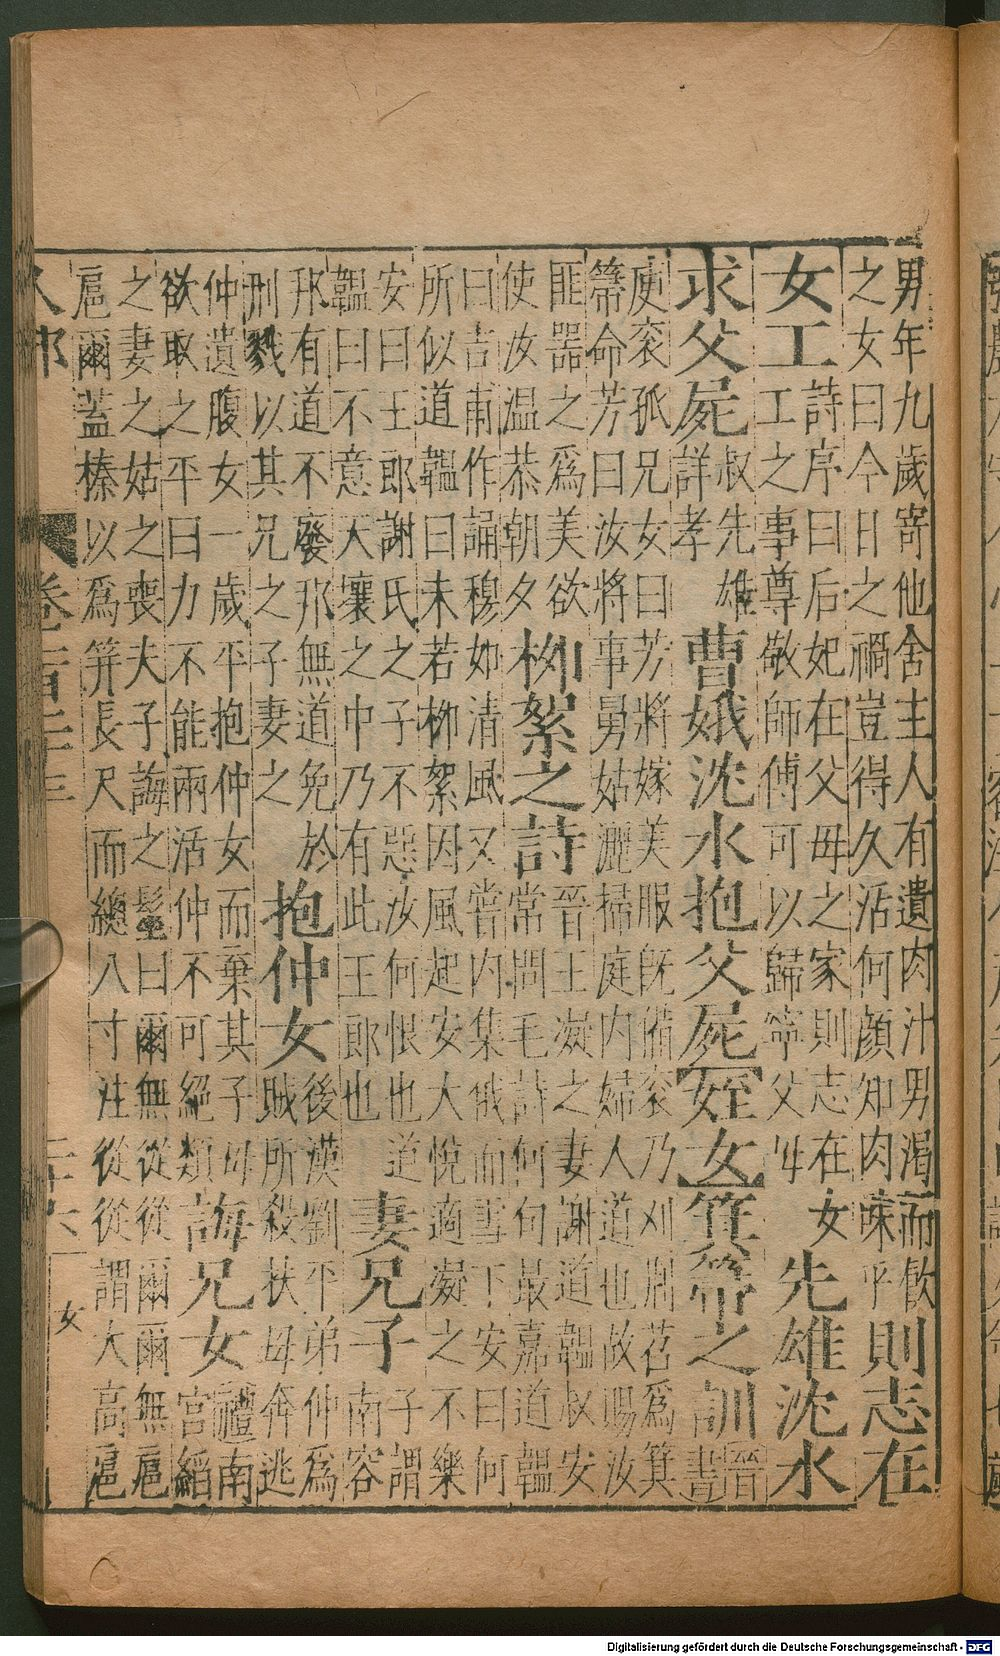 男年九歲寄他舍主人有遺肉汁男渴而飲
之女曰今日之禍豈得久活何顏知肉疎乎
則志在
女工
詩序曰后妃在父母之家則志在女
工之事尊敬師傅可以歸寧父母
先雄沈水
求父屍
叔先雄
詳孝
曹娥沈水抱父屍
姪女
箕箒之訓
晉
書
庾袞孤兄女曰芳將嫁美服旣備袞乃刈荆苕爲箕
箒命芳曰汝將事舅姑灑掃庭内婦人道也故賜汝
匪器之爲美欲
使汝温恭朝夕
柳絮之詩
晉王凝之妻謝道韞叔安
常問毛詩何句最嘉道韞
曰吉甫作誦穆如清風又嘗内集俄而雪下安曰何
所似道韞曰未若柳絮因風起安大悅適凝之不樂
安曰王郎謝氏之子不惡汝何恨也道
韞曰不意天壤之中乃有此王郎也
妻兄子
子謂
南容
邦有道不廢邦無道免於
刑戮以其兄之子妻之
抱仲女
後漢劉平弟仲爲
賊所殺扶母奔逃
仲遺腹女一歲平抱仲女而棄其子母
欲取之平曰力不能兩活仲不可絕類
誨兄女
禮南
宮縚
之妻之姑之喪夫子誨之髽曰爾無從從爾爾無扈
扈爾蓋榛以爲笄長尺而總八寸注從從謂大高扈
女
Digitalisierung gefördert durch die Deutsche Forschungsgemeinschaft - DFG